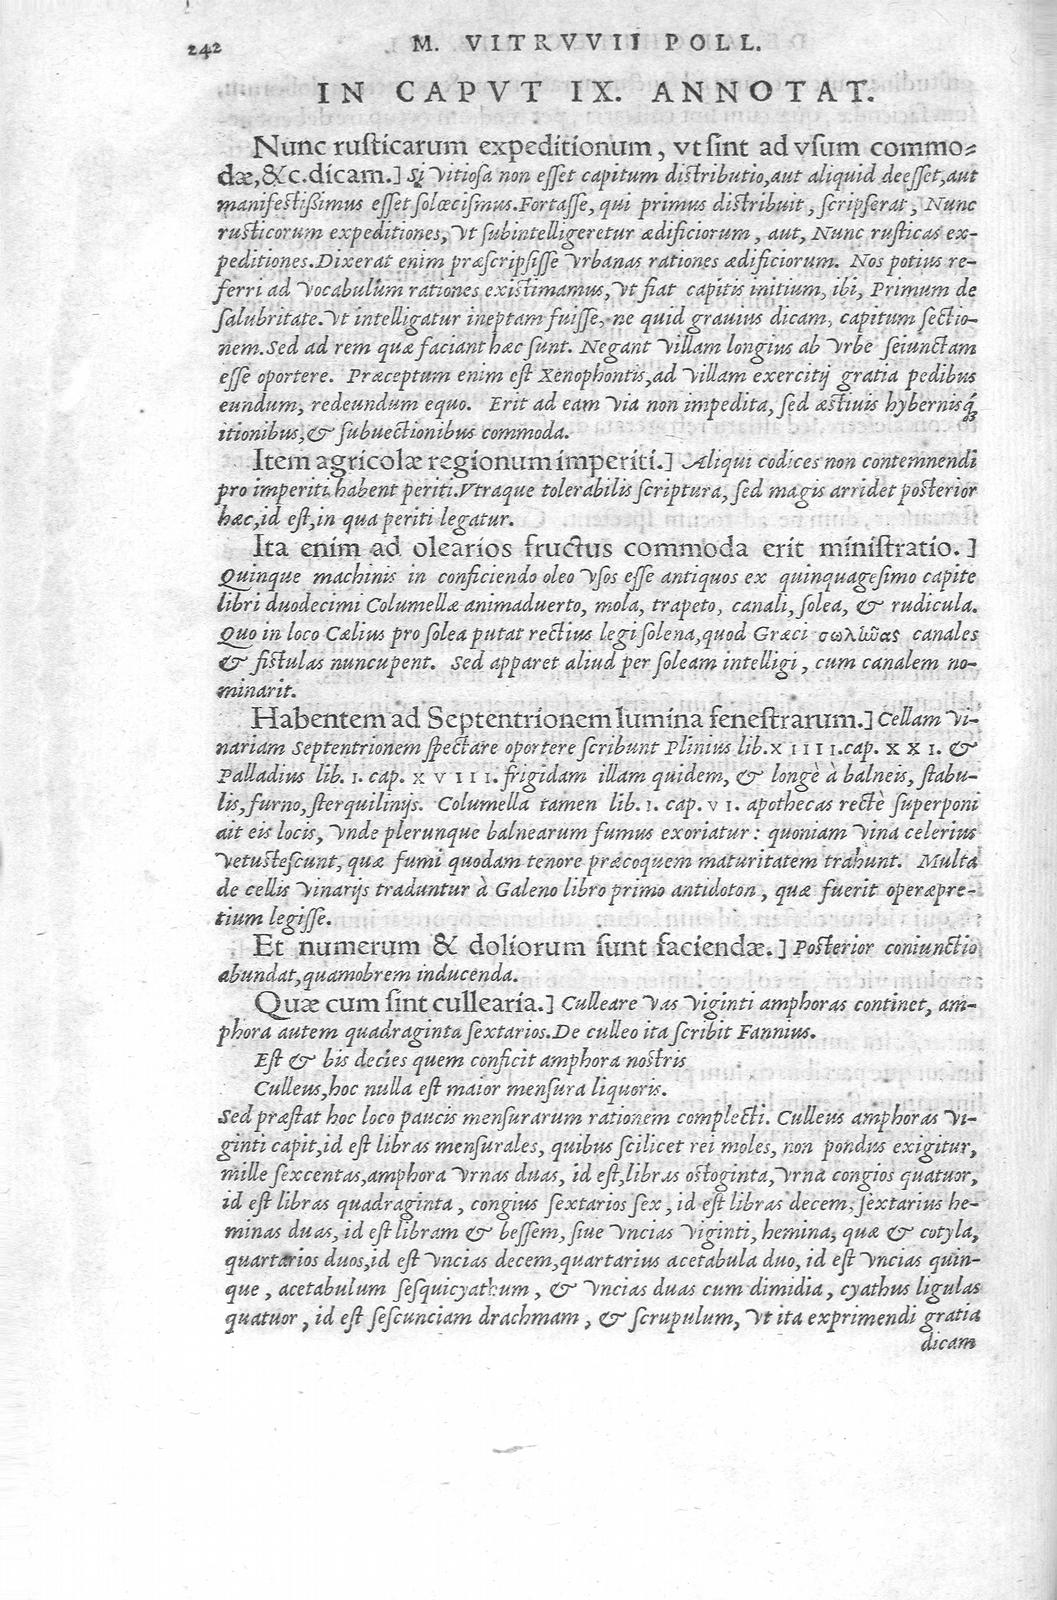 242
M. VITRVVII POLL.
IN CAPVT IX. ANNOTAT.
Nunc rusticarum expeditionum, vt sint ad vsum commo-
dæ, &c. dicam.] Si vitiosa non esset capitum distributio, aut aliquid deesset, aut
manifestißimus esset solœcismus. Fortasse, qui primus distribuit, scripserat, Nunc
rusticorum expeditiones, vt subintelligeretur ædificiorum, aut, Nunc rusticas ex-
peditiones. Dixerat enim præscripsisse vrbanas rationes ædificiorum. Nos potius re-
ferri ad vocabulum rationes existimamus, vt fiat capitis initium, ibi, Primum de
salubritate. vt intelligatur ineptam fuisse, ne quid grauius dicam, capitum sectio-
nem. Sed ad rem quæ faciant hæc sunt. Negant villam longius ab vrbe seiunctam
esse oportere. Præceptum enim est Xenophontis, ad villam exercitij gratia pedibus
eundum, redeundum equo. Erit ad eam via non impedita, sed æstiuis hybernisq́;
itionibus, & subuectionibus commoda.
Item agricolæ regionum imperiti.] Aliqui codices non contemnendi
pro imperiti habent periti. Vtraque tolerabilis scriptura, sed magis arridet posterior
hæc, id est, in qua periti legatur.
Ita enim ad olearios fructus commoda erit ministratio.]
Quinque machinis in conficiendo oleo vsos esse antiquos ex quinquagesimo capite
libri duodecimi Columellæ animaduerto, mola, trapeto, canali, solea, & rudicula.
Quo in loco Cælius pro solea putat rectius legi solena, quod Græci σωλῆνας canales
& fistulas nuncupent. Sed apparet aliud per soleam intelligi, cum canalem no-
minarit.
Habentem ad Septentrionem lumina fenestrarum.] Cellam vi-
nariam Septentrionem spectare oportere scribunt Plinius lib. XIIII. cap. XXI. &
Palladius lib. I. cap. XVIII. frigidam illam quidem, & longè à balneis, stabu-
lis, furno, sterquilinijs. Columella tamen lib. I. cap. VI. apothecas rectè superponi
ait eis locis, vnde plerunque balnearum fumus exoriatur: quoniam vina celerius
vetustescunt, quæ fumi quodam tenore præcoquem maturitatem trahunt. Multa
de cellis vinarijs traduntur à Galeno libro primo antidoton, quæ fuerit operæpre-
tium legisse.
Et numerum & doliorum sunt faciendæ.] Posterior coniunctio
abundat, quamobrem inducenda.
Quæ cum sint cullearia.] Culleare vas viginti amphoras continet, am-
phora autem quadraginta sextarios. De culleo ita scribit Fannius.
Est & bis decies quem conficit amphora nostris
Culleus, hoc nulla est maior mensura liquoris.
Sed præstat hoc loco paucis mensurarum rationem complecti. Culleus amphoras vi-
ginti capit, id est libras mensurales, quibus scilicet rei moles, non pondus exigitur,
mille sexcentas, amphora vrnas duas, id est, libras octoginta, vrna congios quatuor,
id est libras quadraginta, congius sextarios sex, id est libras decem, sextarius he-
minas duas, id est libram & bessem, siue vncias viginti, hemina, quæ & cotyla,
quartarios duos, id est vncias decem, quartarius acetabula duo, id est vncias quin-
que, acetabulum sesquicyathum, & vncias duas cum dimidia, cyathus ligulas
quatuor, id est sescunciam drachmam, & scrupulum, vt ita exprimendi gratia
dicam